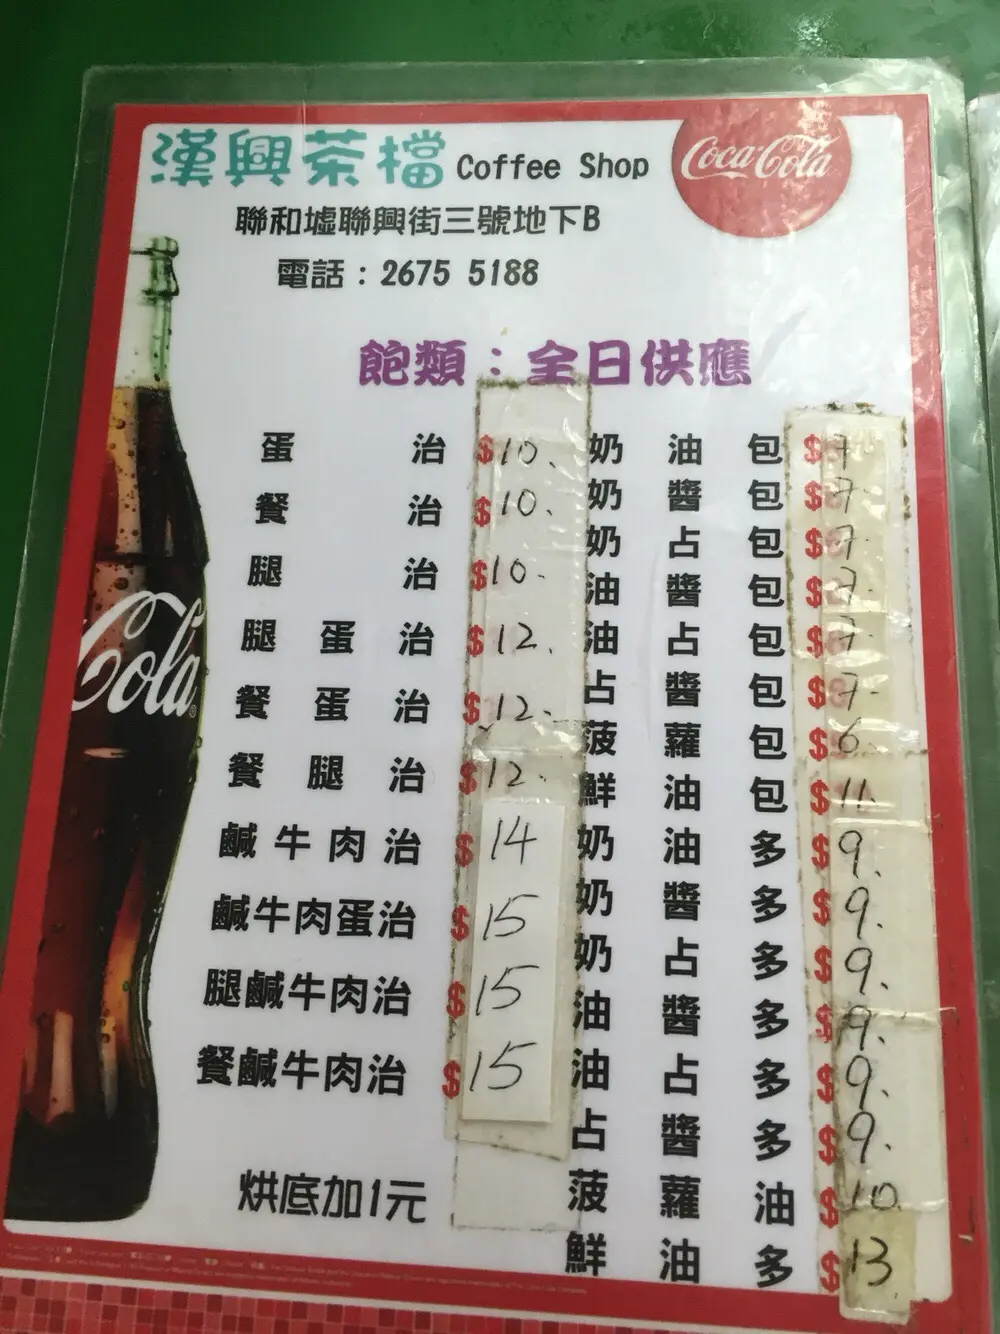 漢興茶檔 Coffee Shop
Coca-Cola
聯和墟聯興街三號地下B
電話：2675 5188
飽類：全日供應
蛋治 $10.
餐治 $10.
腿治 $10.
腿蛋治 $12.
餐蛋治 $12.
餐腿治 $12.
鹹牛肉治 $14
鹹牛肉蛋治 $15
腿鹹牛肉治 $15
餐鹹牛肉治 $15
烘底加1元
奶油包 $7
奶醬包 $7.
奶占包 $7.
油醬包 $7.
油占包 $7.
占醬包 $7.
菠蘿包 $6.
鮮油包 $11.
奶油多 $9.
奶醬多 $9.
奶占多 $9.
油醬多 $9.
油占多 $9.
占醬多 $9.
菠蘿油 $10.
鮮油多 $13.
Cola